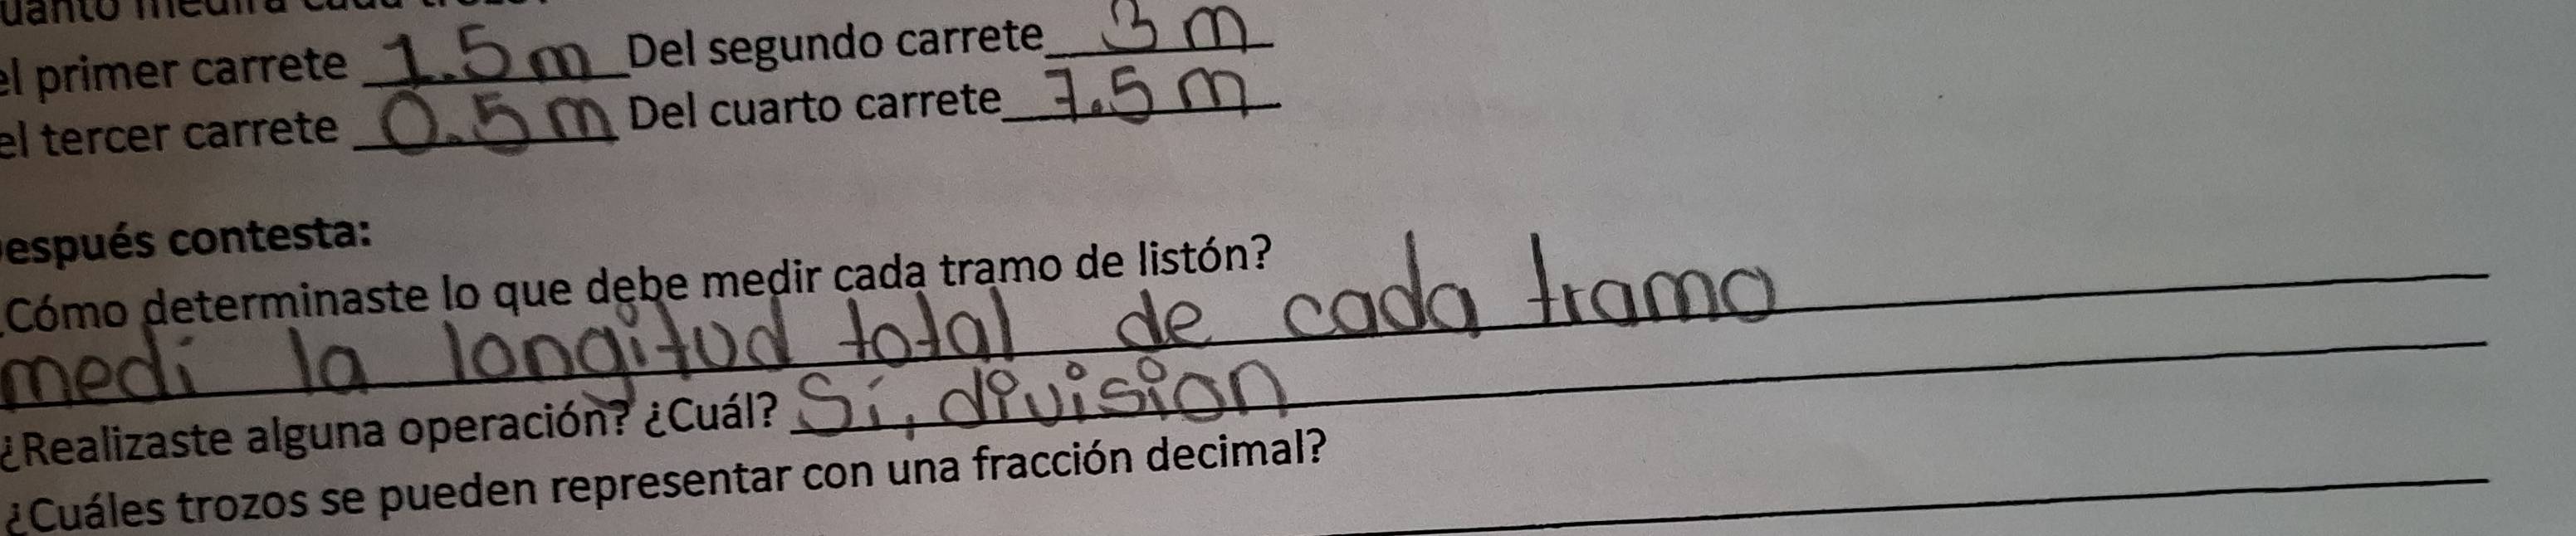 el primer carrete 1.5 m Del segundo carrete 3 m
el tercer carrete 0.5 m Del cuarto carrete 7.5 m
espués contesta:
Cómo determinaste lo que debe medir cada tramo de listón?
medi la longitud total de cada tramo
¿Realizaste alguna operación? ¿Cuál? Si, division
¿Cuáles trozos se pueden representar con una fracción decimal?